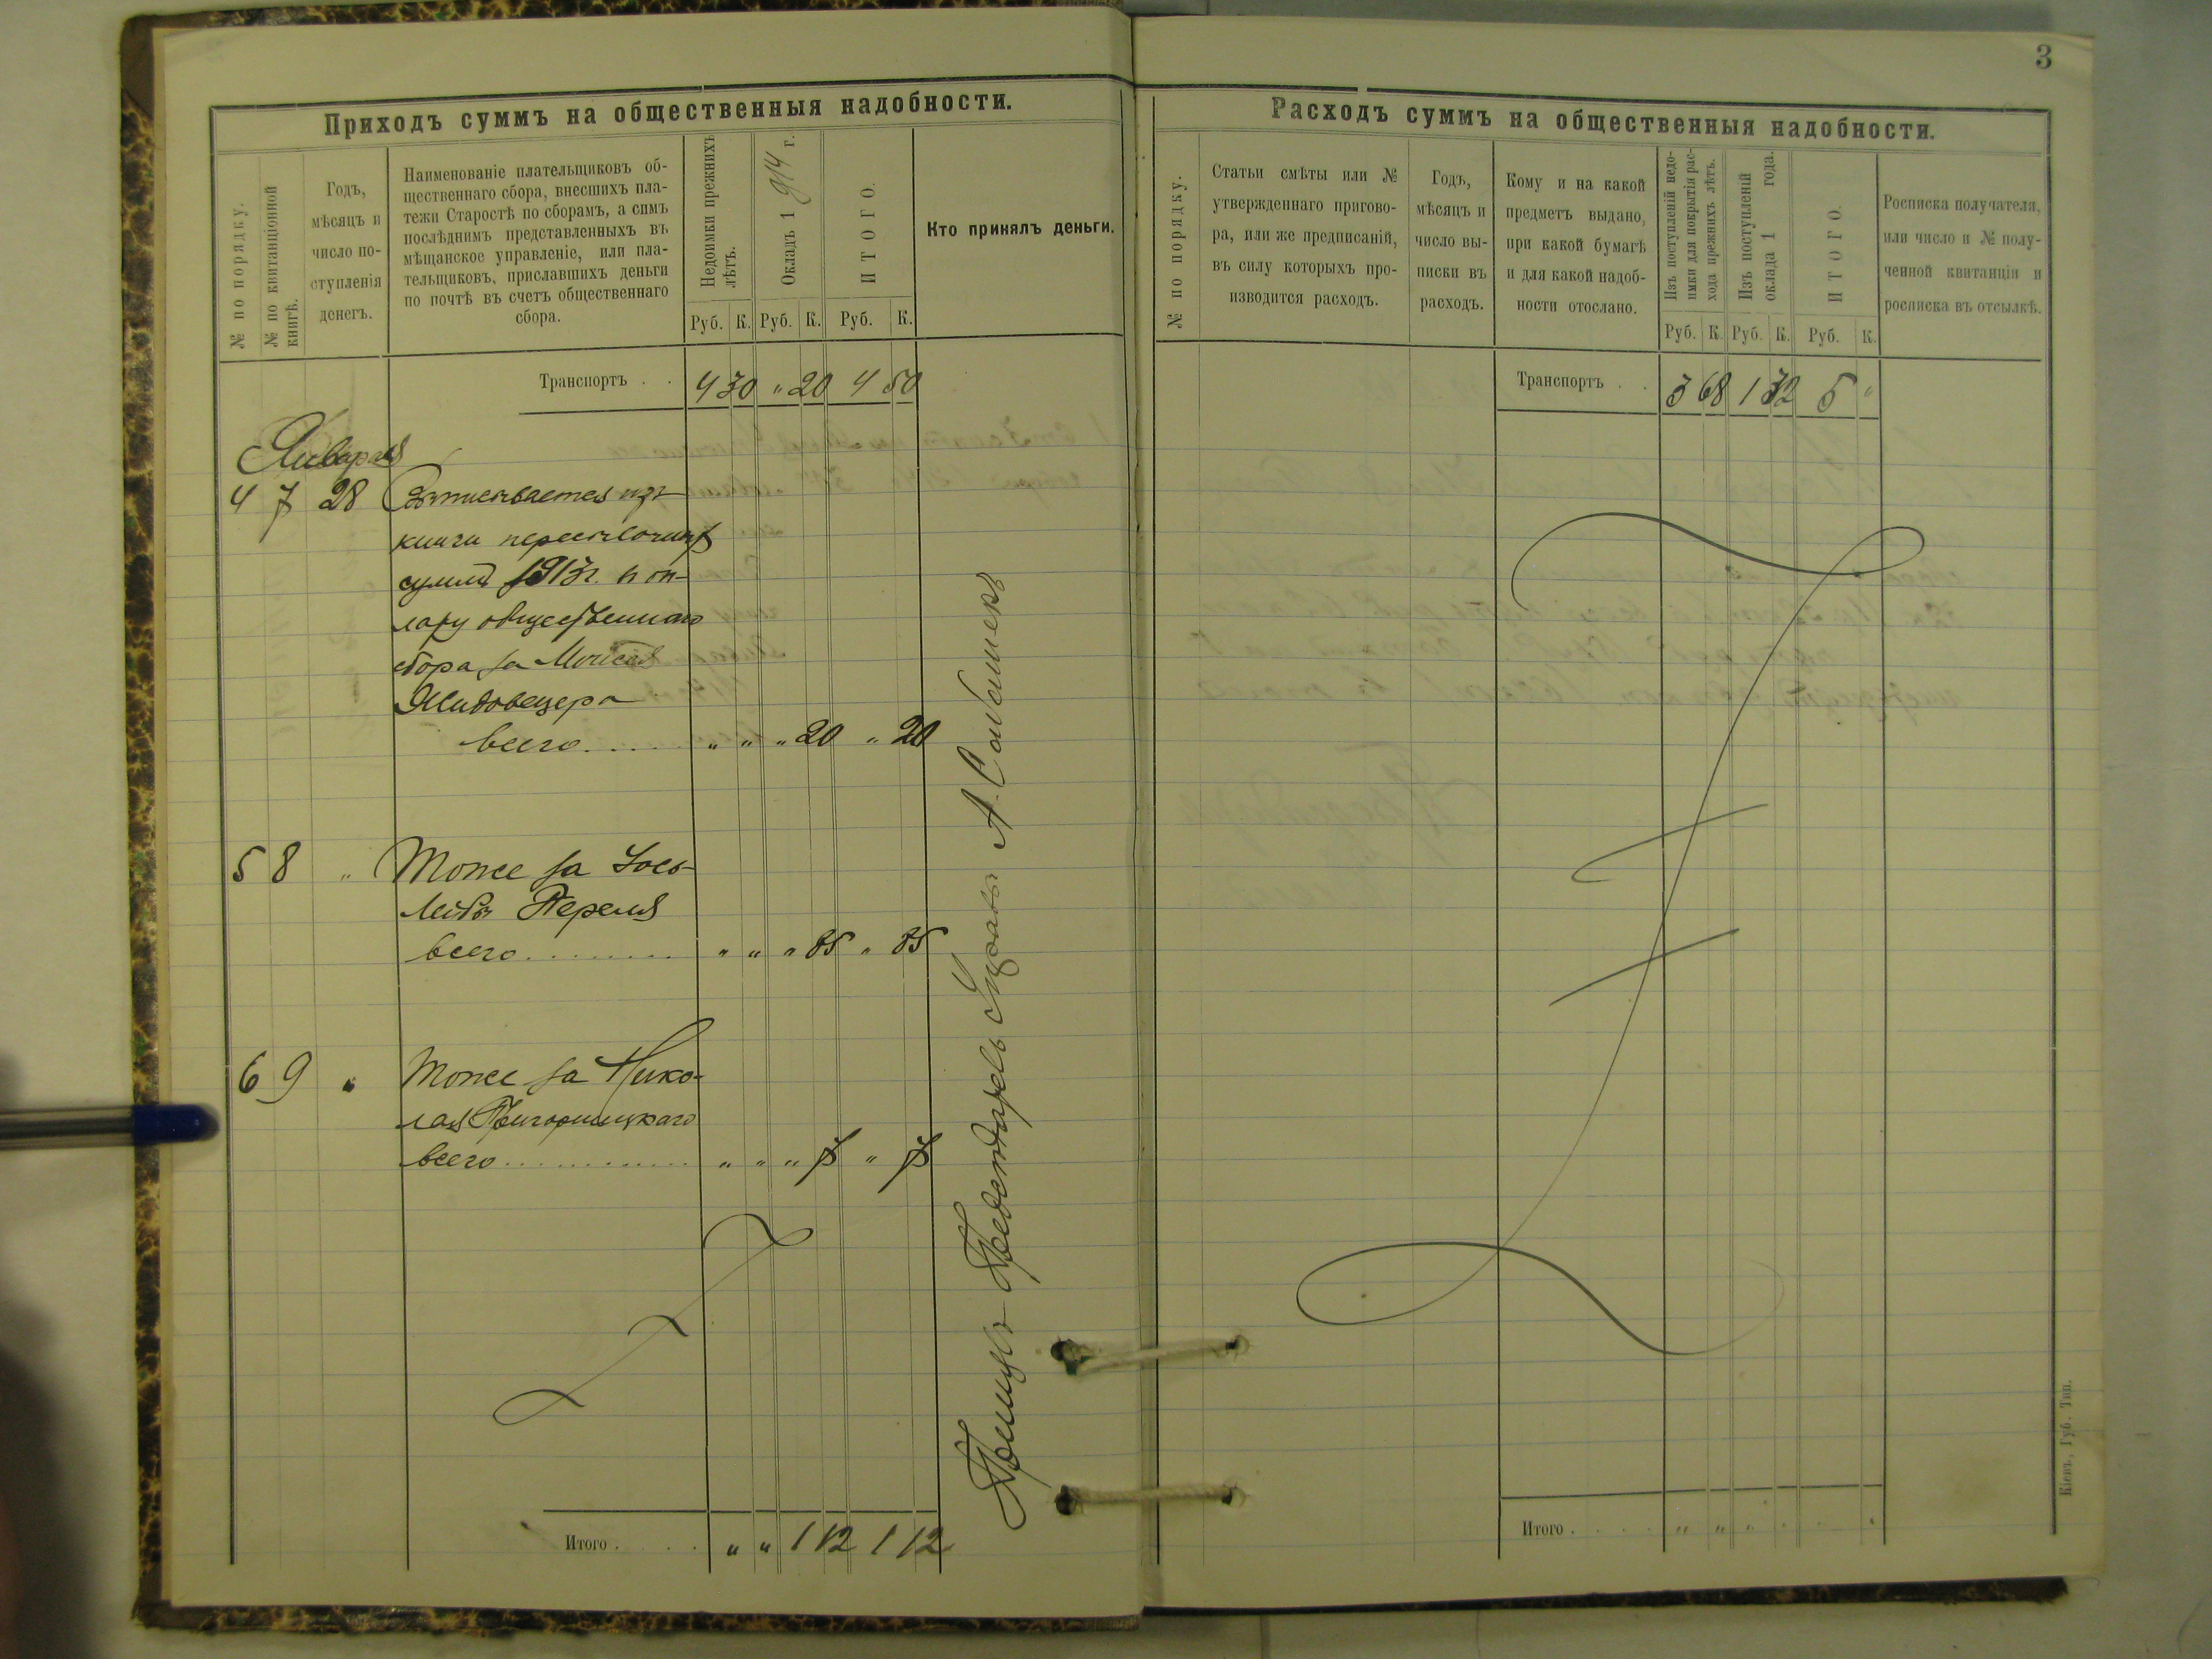 3
Приходъ суммъ на общественныя надобности.
№ по порядку.
№ по квитанціонной
книгѣ.
Годъ,
мѣсяцъ и
число по-
ступленія
денегъ.
Наименованіе плательщиковъ об-
щественнаго сбора, внесшихъ пла-
тежи Старостѣ по сборамъ, а симъ
послѣднимъ представленныхъ въ
мѣщанское управленіе, или пла-
тельщиковъ, приславшихъ деньги
по почтѣ въ счетъ общественнаго
сбора.
Недоимки прежнихъ
лѣтъ.
Окладъ 1914 г.
ИТОГО.
Руб. К. Руб. К. Руб. К.
Кто принялъ деньги.
Транспортъ . . 4 30 " 20 4 50
Января
4 7 28
книги
суммъ 1913 г. в ок-
ладу общественнаго
сбора за Моисея
Жидовецера
всего..... " " " 20 " 20
5 8 " Тоже за Іось-
Лейбу Переля
всего......... " " " 85 " 85
6 9 " Тоже за Нико-
лая
всего............ " " " 7 " 7
Итого . . . . " " 1 12 1 12
А. Сабашекъ
Расходъ суммъ на общественныя надобности.
№ по порядку.
Статьи смѣты или №
утвержденнаго пригово-
ра, или же предписаній,
въ силу которыхъ про-
изводится расходъ.
Годъ,
мѣсяцъ и
число вы-
писки въ
расходъ.
Кому и на какой
предметъ выдано,
при какой бумагѣ
и для какой надоб-
ности отослано.
Изъ поступленій недо-
имки для покрытія рас-
хода прежнихъ лѣтъ.
Изъ поступленій
оклада 1 года.
ИТОГО.
Руб. К. Руб. К. Руб. К.
Росписка получателя,
или число и № полу-
ченной квитанціи и
росписка въ отсылкѣ.
Транспортъ . . 3 68 1 32 5 "
Итого . . . . " " " . . "
Кіевъ, Губ. Тип.